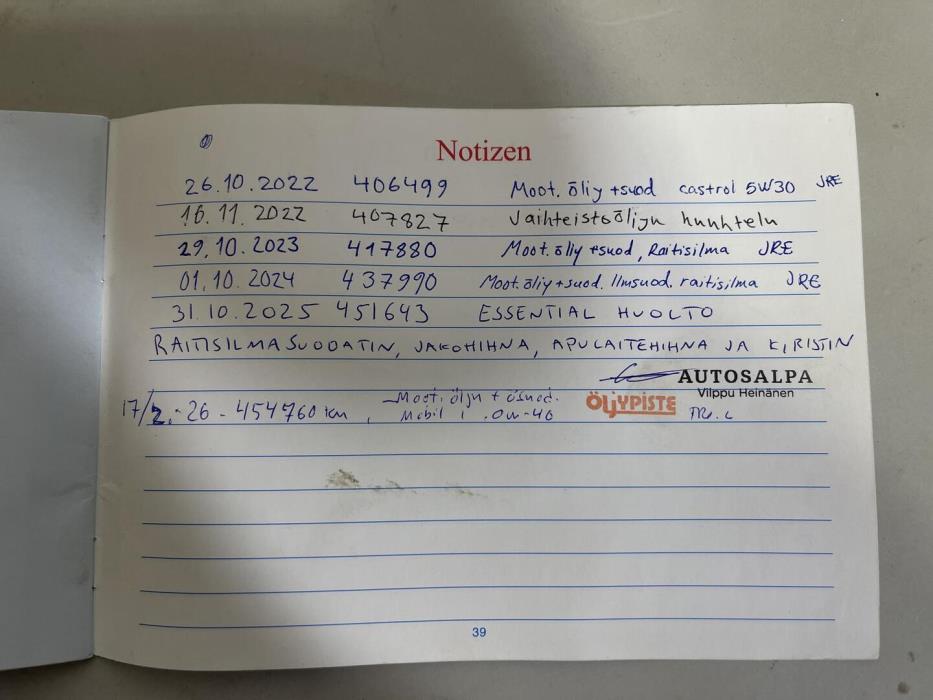 Notizen
26.10.2022 406499 Moot. öliy +suod castrol 5W30 JRE
16.11.2022 407827 Vaihteistoöljyn huuhtelu
29.10.2023 417880 Moot. ölly +suod, Raitisilma JRE
01.10.2024 437990 Moot. öliy +suod. Ilmsuod. raitisilma JRE
31.10.2025 451643 ESSENTIAL HUOLTO
RAITISILMASUODATIN, JAKOHIHNA, APULAITEHIHNA JA KIRISTIN
AUTOSALPA
Vilppu Heinänen
17/2.-26 - 454760 km, Moot. öljn + ösuod.
Mobil 1 0w-40
ÖLJYPISTE
39